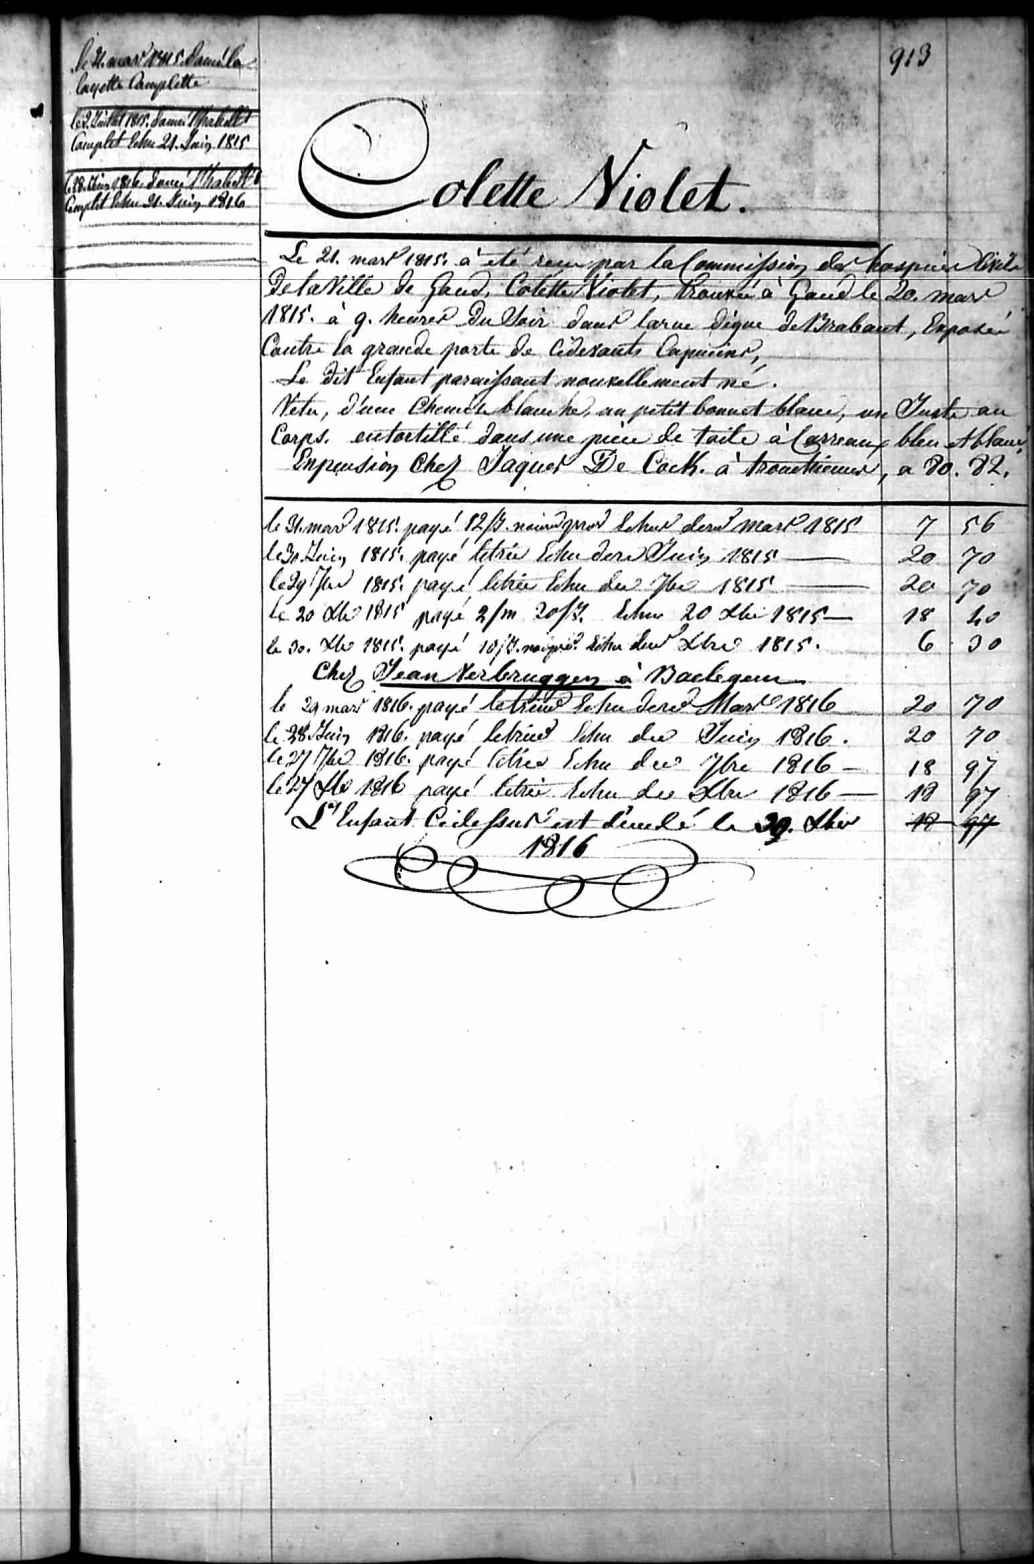 913
le 21. mars 1815. donné la
layette Complette
le 2. Juillet 1815. donné l'habillt
Complet Echu 21. Juin 1815
le 28. Juin 1816. donné l'habillt
Complet Echu 21. Juin 1816
Colette Violet.
Le 21. mars 1815. à été recu par la Commission des hospices Civils
De la Ville de Gand, Colette Violet, trouvée à Gand le 20. mars
1815. à 9. heures Du Soir dans la rue digue de Brabant, Exposée
Contre la grande porte de cidevants Capucins,
Le dit Enfant paraissant nouvellement né.
Vetu, d'une Chemise blanche, un petit bonnet blanc, un Juste au
Corps. entortillé dans une piece de toile à Carreaux bleu et blanc,
En pension Chez Jaques De Cock. à tronchiennes, a 80. 82.
le 31. mars 1815. payé Echu mars 1815 7 56
le 30 Juin 1815. payé letrim Echu dern Juin 1815 20 70
le 29 7bre 1815. payé letrim Echu der 7bre 1815 20 70
le 20 Xbre 1815 payé 2/m 20/J. Echu 20 Xbre 1815 18 40
le 30. Xbre 1815. payé 10/J. Echu der Xbre 1815. 6 30
Chez Jean Verbruggen à Baelegem
le 29 mars 1816. payé letrim Echu dern Mars 1816 20 70
le 28. Juin 1816. payé letrim Echu der Juin 1816. 20 70
le 27 7bre 1816. payé letrim Echu der 7bre 1816 18 97
le 27 Xbre 1816 payé letrim Echu der Xbre 1816 18 97
L'Enfant Cidessus est décédé le 29. Xbre 18 97
1816